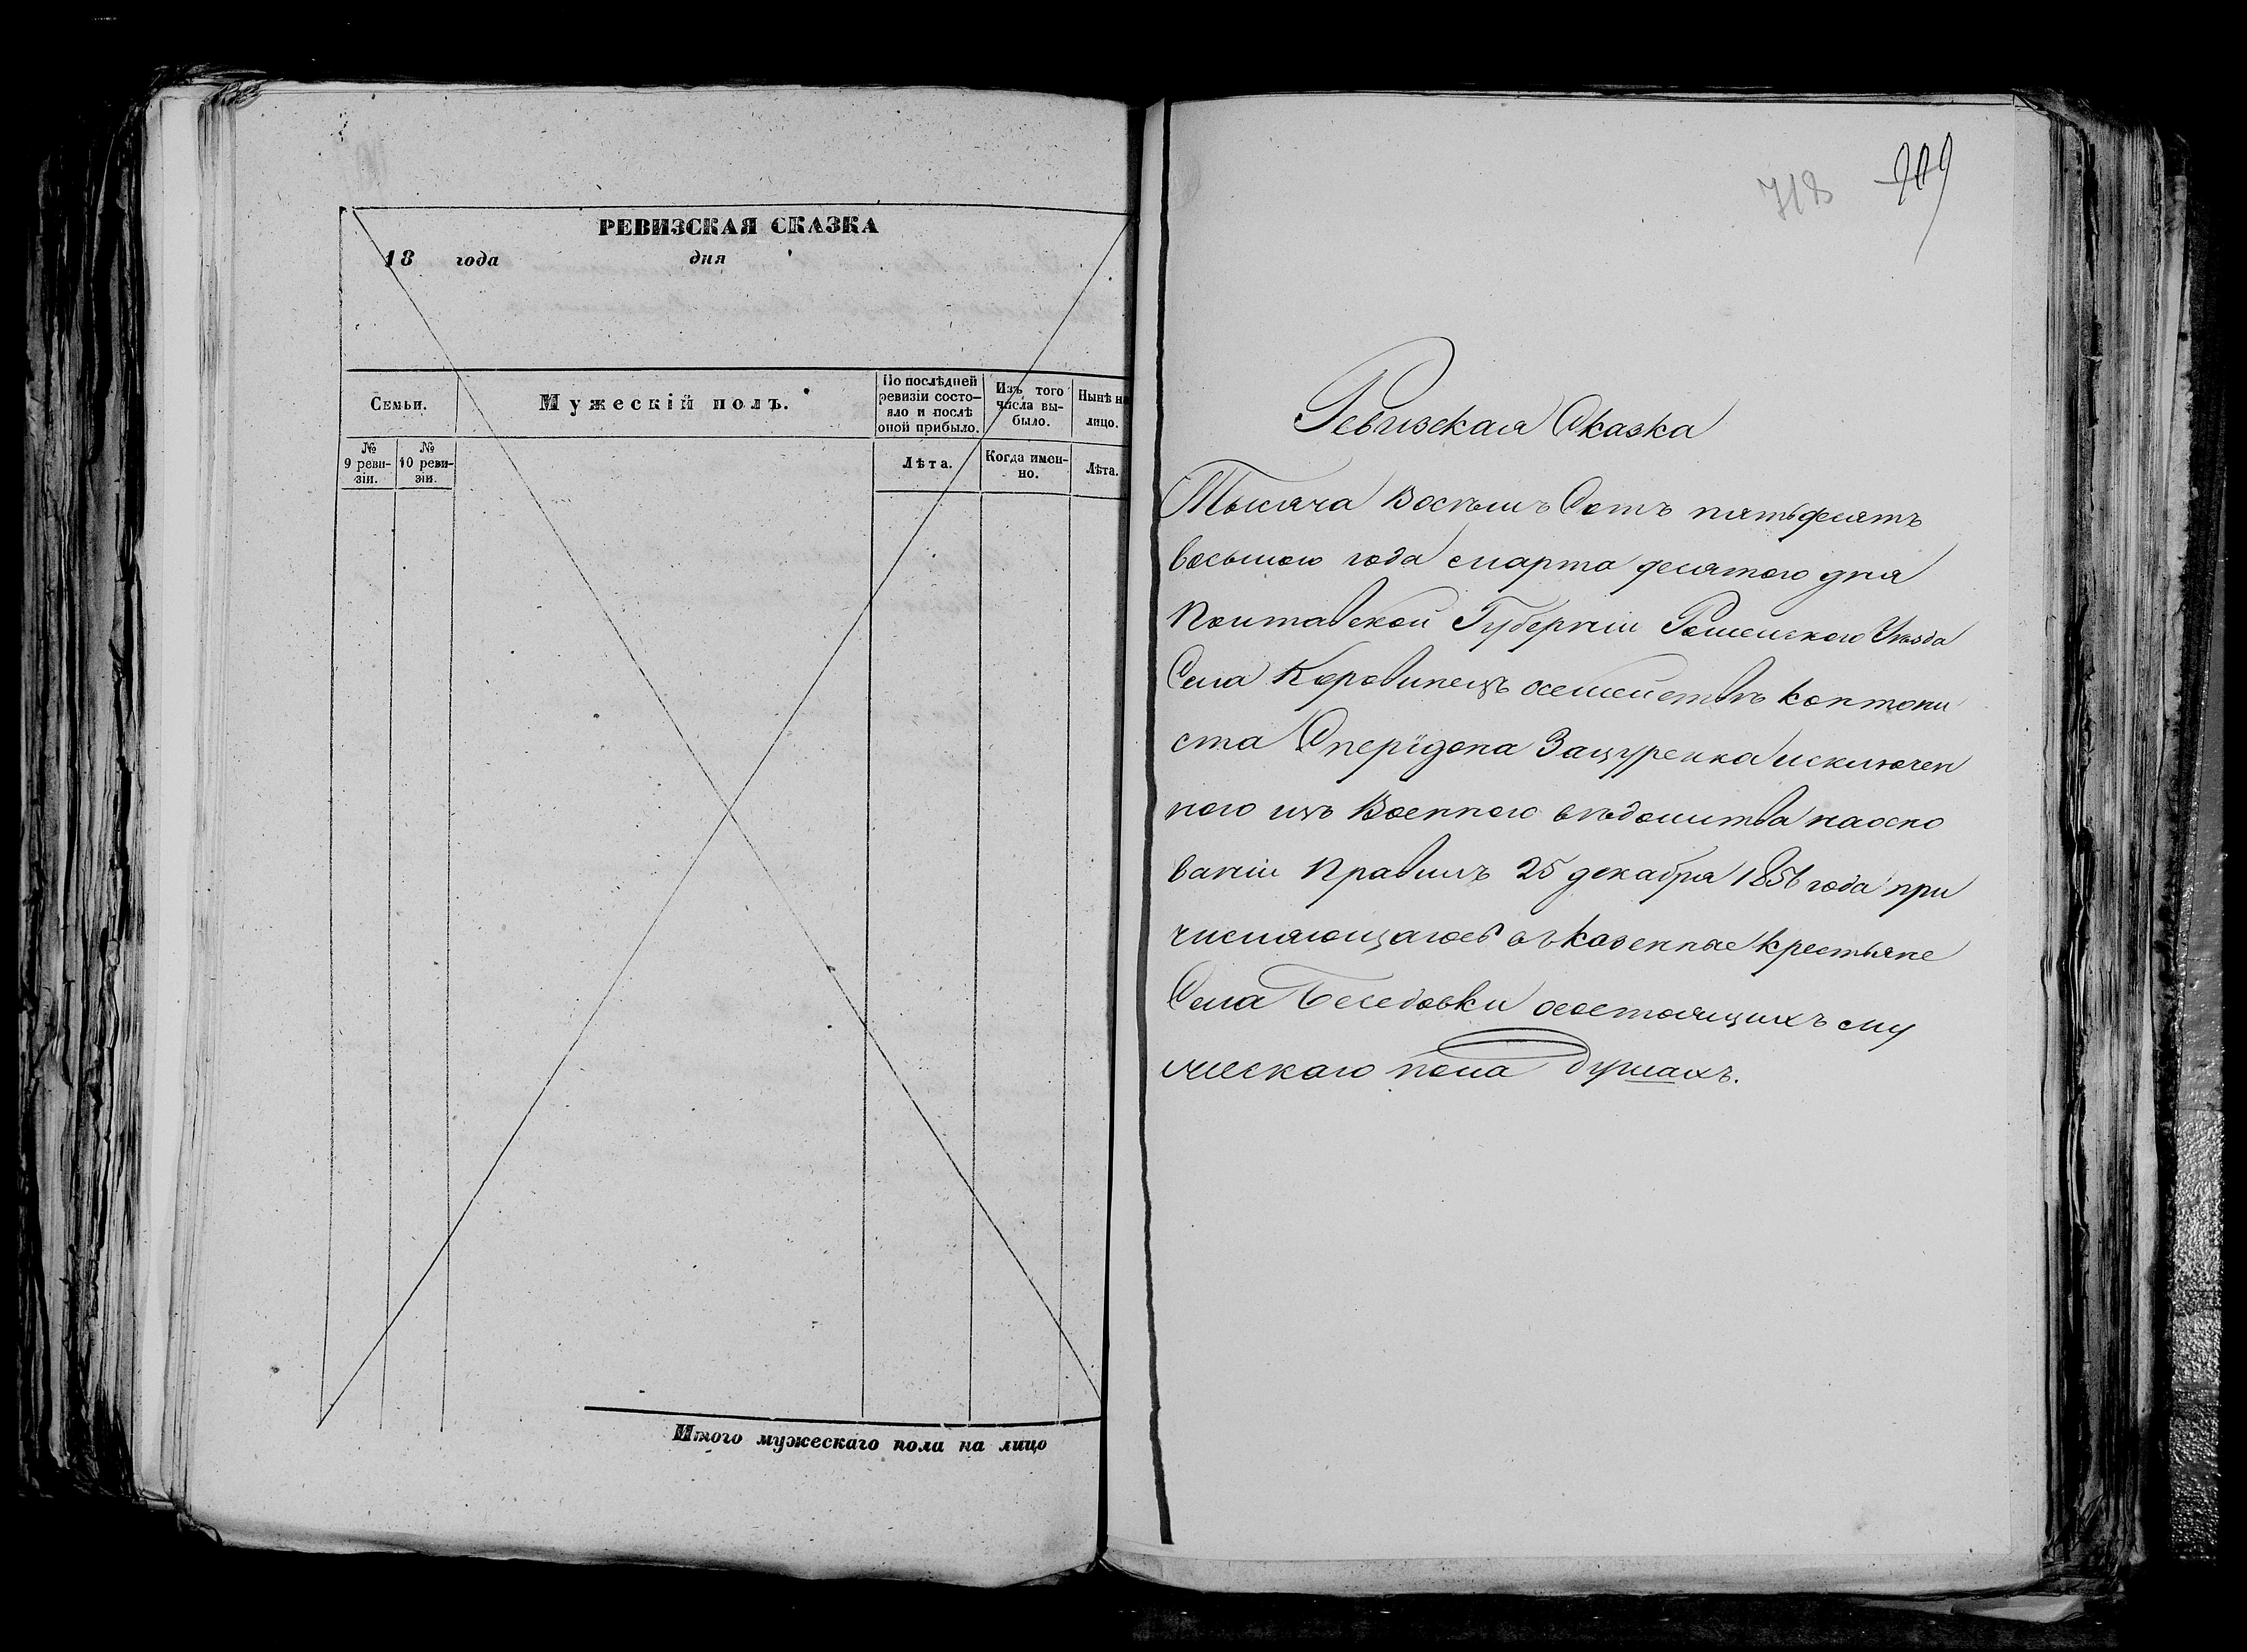 РЕВИЗСКАЯ СКАЗКА
18 года дня
Семьи.
Мужескій полъ.
По послѣдней
ревизіи состо-
яло и послѣ
оной прибыло.
Изъ того
числа вы-
было.
Нынѣ на
лицо.
№
9 реви-
зіи.
№
10 реви-
зіи.
Лѣта.
Когда имен-
но.
Лѣта.
Итого мужескаго пола на лицо
718 709
Ревизская Сказка
Тысяча Восемъ Сотъ пятьдесятъ
восьмого года смарта десятого дня
Полтавской Губерніи Роменского Уѣзда
Села Коровинецъ осемействѣ контони
ста Сперидона Зацуренка исключен
ного изъ Военного вѣдомства наосно
ваніи Правилъ 25 декабря 1856 года при
числяющагося въ казенные крестьяне
Села Беседовки осостоящихъ му
жескаго пола душахъ.